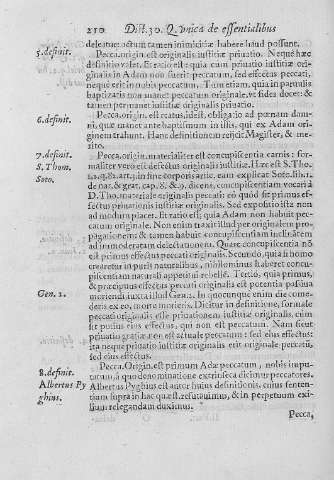 210 Dist. 30. Q. vnica de essentialibus
deleatur: ostum tamen inimicitiæ habere haud possunt.
5. definit. Pecca. origin. est originalis iustitiæ priuatio. Neque hæc
definitio valet. Et ratio est: quia cum priuatio iustitiæ ori-
ginalis in Adam non fuerit peccatum, sed effectus peccati,
neque erit in nobis peccatum. Tum etiam, quia in paruulis
baptizatis non manet peccatum originale, vt fides docet: &
tamen permanet iustitiæ originalis priuatio.
6. definit. Pecca. origin. est reatus, idest, obligatio ad pœnam damni,
quæ manet ante baptismum in illis, qui ex Adam ori-
ginem trahunt. Hanc definitionem reijcit Magister, & me-
rito.
7. definit. Pecca. origin. materialiter est concupiscentia carnis: for-
S. Thom. maliter vero est defectus originalis iustitiæ. Hæc est S. Tho.
Soto. 1.2. q. 82. art. 3. in fine corporis aric. eam explicat Soto. lib. 1.
de nat. & grat. cap. 8. & 9. dicens, concupiscentiam vocari à
D. Tho. materiale originalis peccati: eo quòd sit primus ef-
fectus priuationis iustitiæ originalis. Sed expositio ista non
admodum placet. Et ratio est: quia Adam non habuit pec-
catum originale. Non enim traxit illud per originalem pro-
pagationem: & tamen habuit concupiscentiam inclinatem
ad immoderatam delectationem. Quare concupiscentia nõ
est primus effectus peccati originalis. Secundo, quia si homo
crearetur in puris naturalibus, nihilominus haberet concu-
piscentiam naturali appetitui rebelle. Tertiò, quia primus,
& præcipuus effectus peccati originalis est potentia passiua
Gen. 2. moriendi iuxta illud Gen. 2. In quocunque enim die come-
deris ex eo, morte morieris. Dicitur in definitione, formale
peccati originalis esse priuationem iustitiæ originalis, cum
sit potius eius effectus, qui non est peccatum. Nam sicut
priuatio gratiæ non est actuale peccatum: sed eius effectus:
ita neque priuatio iustitiæ originalis erit originale peccatū,
sed eius effectus.
8. definit. Pecca. Origin. est primum Adæ peccatum, nobis impu-
tatum, à quo denominatione extrinseca dicimur peccatores.
Albertus Py Albertus Pyghius est autor huius definitionis. cuius senten-
ghius. tiam supra in hac quæst. refutauimus, & in perpetuum exi-
lium relegandam duximus.
Pecca,